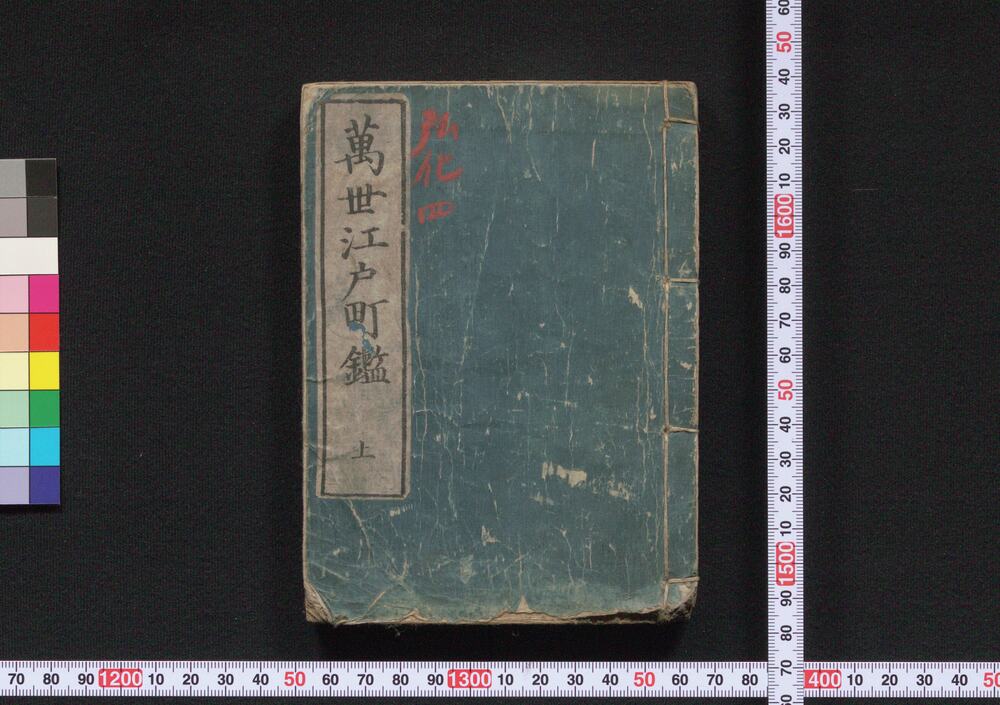 弘化四
萬世江戸町鑑
上
60
50
40
30
20
10
1600
90
80
70
60
50
40
30
20
10
1500
90
80
70
60
70 80 90 1200 10 20 30 40 50 60 70 80 90 1300 10 20 30 40 50 60 70 80 400 10 20 30 40 50